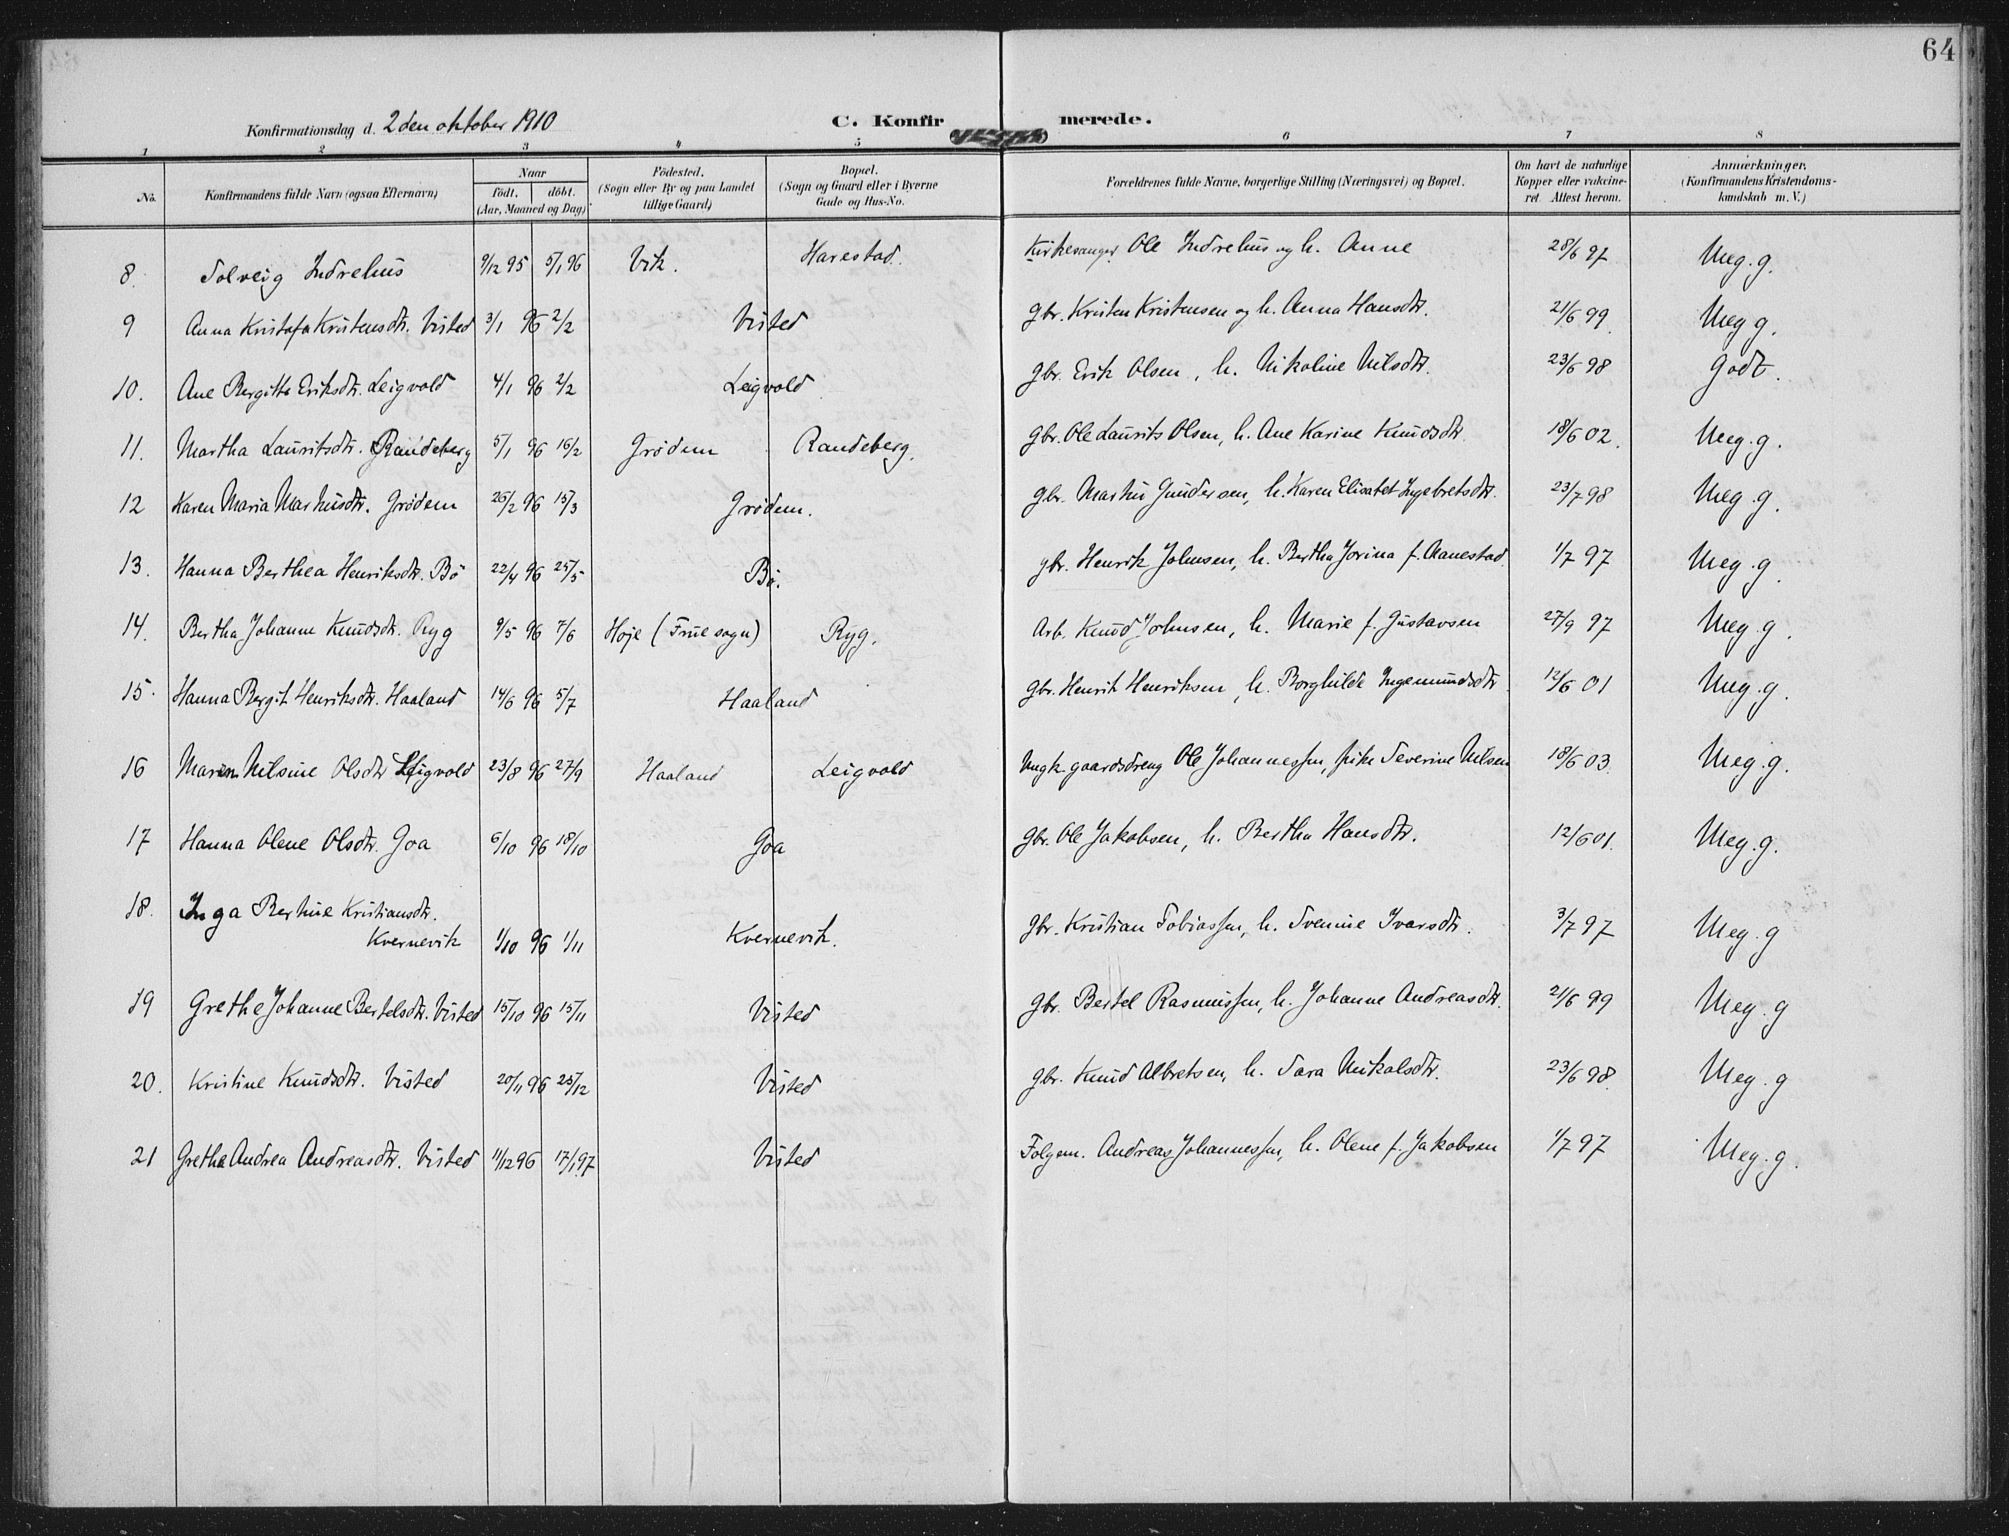 64
Konfirmationsdag d. 2den oktober 1910 C. Konfirmerede.
1 2 3 4 5 6 7 8
No. Konfirmandens fulde Navn (ogsaa Efternavn) Naar födt. döbt. (Aar, Maaned og Dag) Födested. (Sogn eller By og paa Landet tillige Gaard) Bopæl. (Sogn og Gaard eller i Byerne Gade og Hus-No. Forældrenes fulde Navne, borgerlige Stilling (Næringsvei) og Bopæl. Om havt de naturlige Kopper eller vakcineret. Attest herom. Anmærkninger. (Konfirmandens Kristendomskundskab m. V.)
8. Solveig Indrehus 9/12 95 5/1 96 Vik. Harestad. Kirkesanger Ole Indrehus og h. Anne 28/6 97 Meg. g.
9 Anna Kristofa Kristensdtr. Visted 3/1 96 2/2 Visted gbr. Kristen Kristensen og h. Anna Hansdtr. 21/6 99 Meg g.
10. Ane Bergitte Eriksdtr. Leigvold 4/1 96 2/2 Leigvold gbr. Erik Olsen, h. Nikoline Nilsdtr. 23/6 98 godt.
11. Martha Lauritsdtr. Randeberg 5/1 96 16/2 Grödem Randeberg. gbr. Ole Laurits Olsen, h. Ane Karine Knudsdtr. 18/6 02. Meg. g.
12 Karen Maria Markusdtr. Grödem 26/2 96 15/3 Grödem. gbr. Markus Gundersen, h. Karen Elisabet Ingebretsdtr. 23/7 98 Meg. g.
13. Hanna Berthea Henriksdtr. Bö 22/4 96 25/5 Bö. gbr. Henrik Johnsen, h. Bertha Jorina f. Aanestad. 1/7 97 Meg. g.
14. Bertha Johanne Knudsdtr. Ryg 9/5 96 7/6 Hoje (Frue sogn) Ryg. Arb. Knud Johnsen, h. Marie f. Gustavsen 27/9 97 Meg. g.
15. Hanna Bergit Henriksdtr. Haaland 14/6 96 5/7 Haaland gbr. Henrik Henriksen, h. Borghilde Ingemundsdtr. 12/6 01 Meg. g.
16 Maren Nilsine Olsdtr Leigvold 23/8 96 27/9 Haaland Leigvold Ungk. gaardsdreng Ole Johannessen, pike Severine Nilsen 18/6 03. Meg. g.
17 Hanna Olene Olsdtr. Goa 6/10 96 18/10 Goa gbr. Ole Jakobsen, h. Bertha Hansdtr. 12/6 01. Meg. g.
18. Inga Bertine Kristiansdtr.
Kvernevik 1/10 96 1/11 Kvernevik. gbr. Kristian Tobiassen, h. Svenine Ivarsdtr. 3/7 97 Meg. g
19 Grethe Johanne Bertelsdtr. Visted 15/10 96 15/11 Visted gbr. Bertel Rasmussen, h. Johanne Andreasdtr. 21/6 99 Meg. g
20. Kristine Knudsdtr. Visted 20/11 96 25/12 Visted gbr. Knud Albretsen, h. Sara Nikolsdtr. 23/6 98. Meg. g
21 Grethe Andrea Andreasdtr. Visted 11/12 96 17/1 97 Visted Folgem. Andreas Johannessen, h. Olene f. Jakobsen 1/7 97 Meg. g.